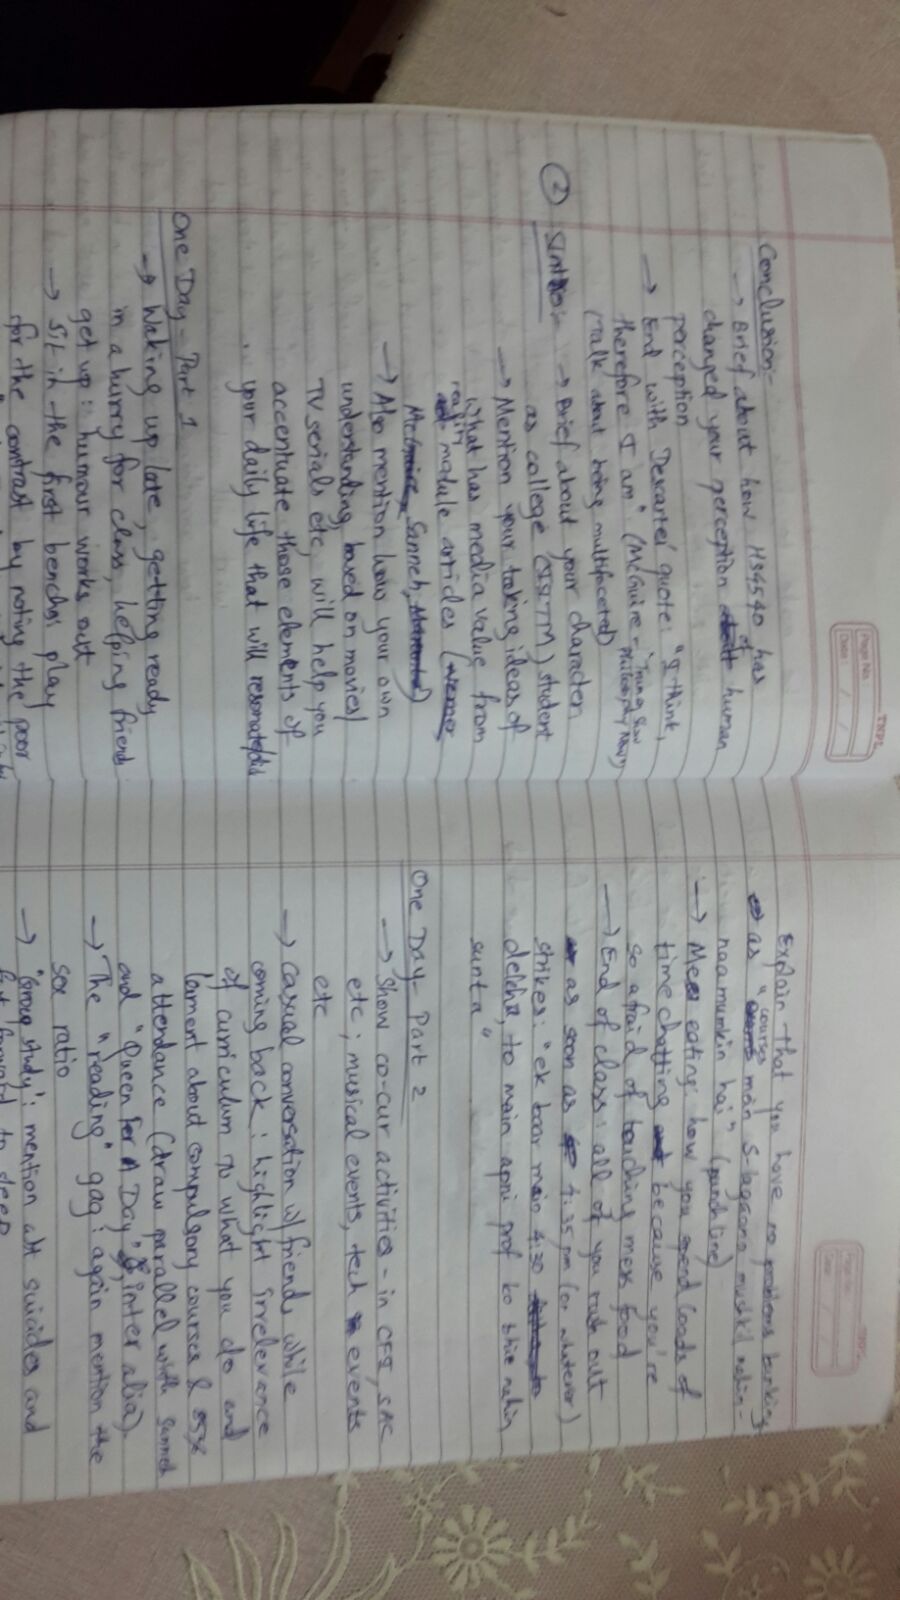 TNPL
Page No.
Date: / /
Conclusion:-
→ Brief about how HS4540 has
changed your perception of human
perception
→ End with Descartes' quote: "I think,
therefore I am" (McGuire - "Truman Show" Philosophy Now)
(Talk about being multifaceted)
② → Brief about your character
as college (IITM) student
→ Mention your taking ideas of
what has media value from
reality module articles (
Sanneh,
→ Also mention how your own
understanding, based on movies/
TV serials etc, will help you
accentuate those elements of
your daily life that will resonate
One Day - Part 1
→ Waking up late, getting ready
in a hurry for class, helping friend
get up: humour works out
→ Sit in the first bench: play
for the contrast by noting the poor
TNPL
Page No.
Date: / /
Explain that you have no problems bunking
as "courses main S lagaana mushkil nahin -
naamumkin hai" (punchline)
→ Mess eating: how you spend loads of
time chatting because you're
so afraid of touching mess food
→ End of class: all of you rush out
as soon as 4:35 pm (or whatever)
strikes: "ek baar main 4:30
dekh, to main apni prof ko bhi nahin
sunta"
One Day - Part 2
→ Show co-cur activities - in CFI, SAC
etc; musical events, tech events
etc
→ Casual conversation w/ friends while
coming back: highlight irrelevance
of curriculum to what you do and
lament about compulsory courses & 85%
attendance (draw parallel with Sanneh
and "Queen for A Day", inter alia).
→ The "reading" gag: again mention the
sex ratio
→ "Group study": mention abt suicides and
fast forward to sleep